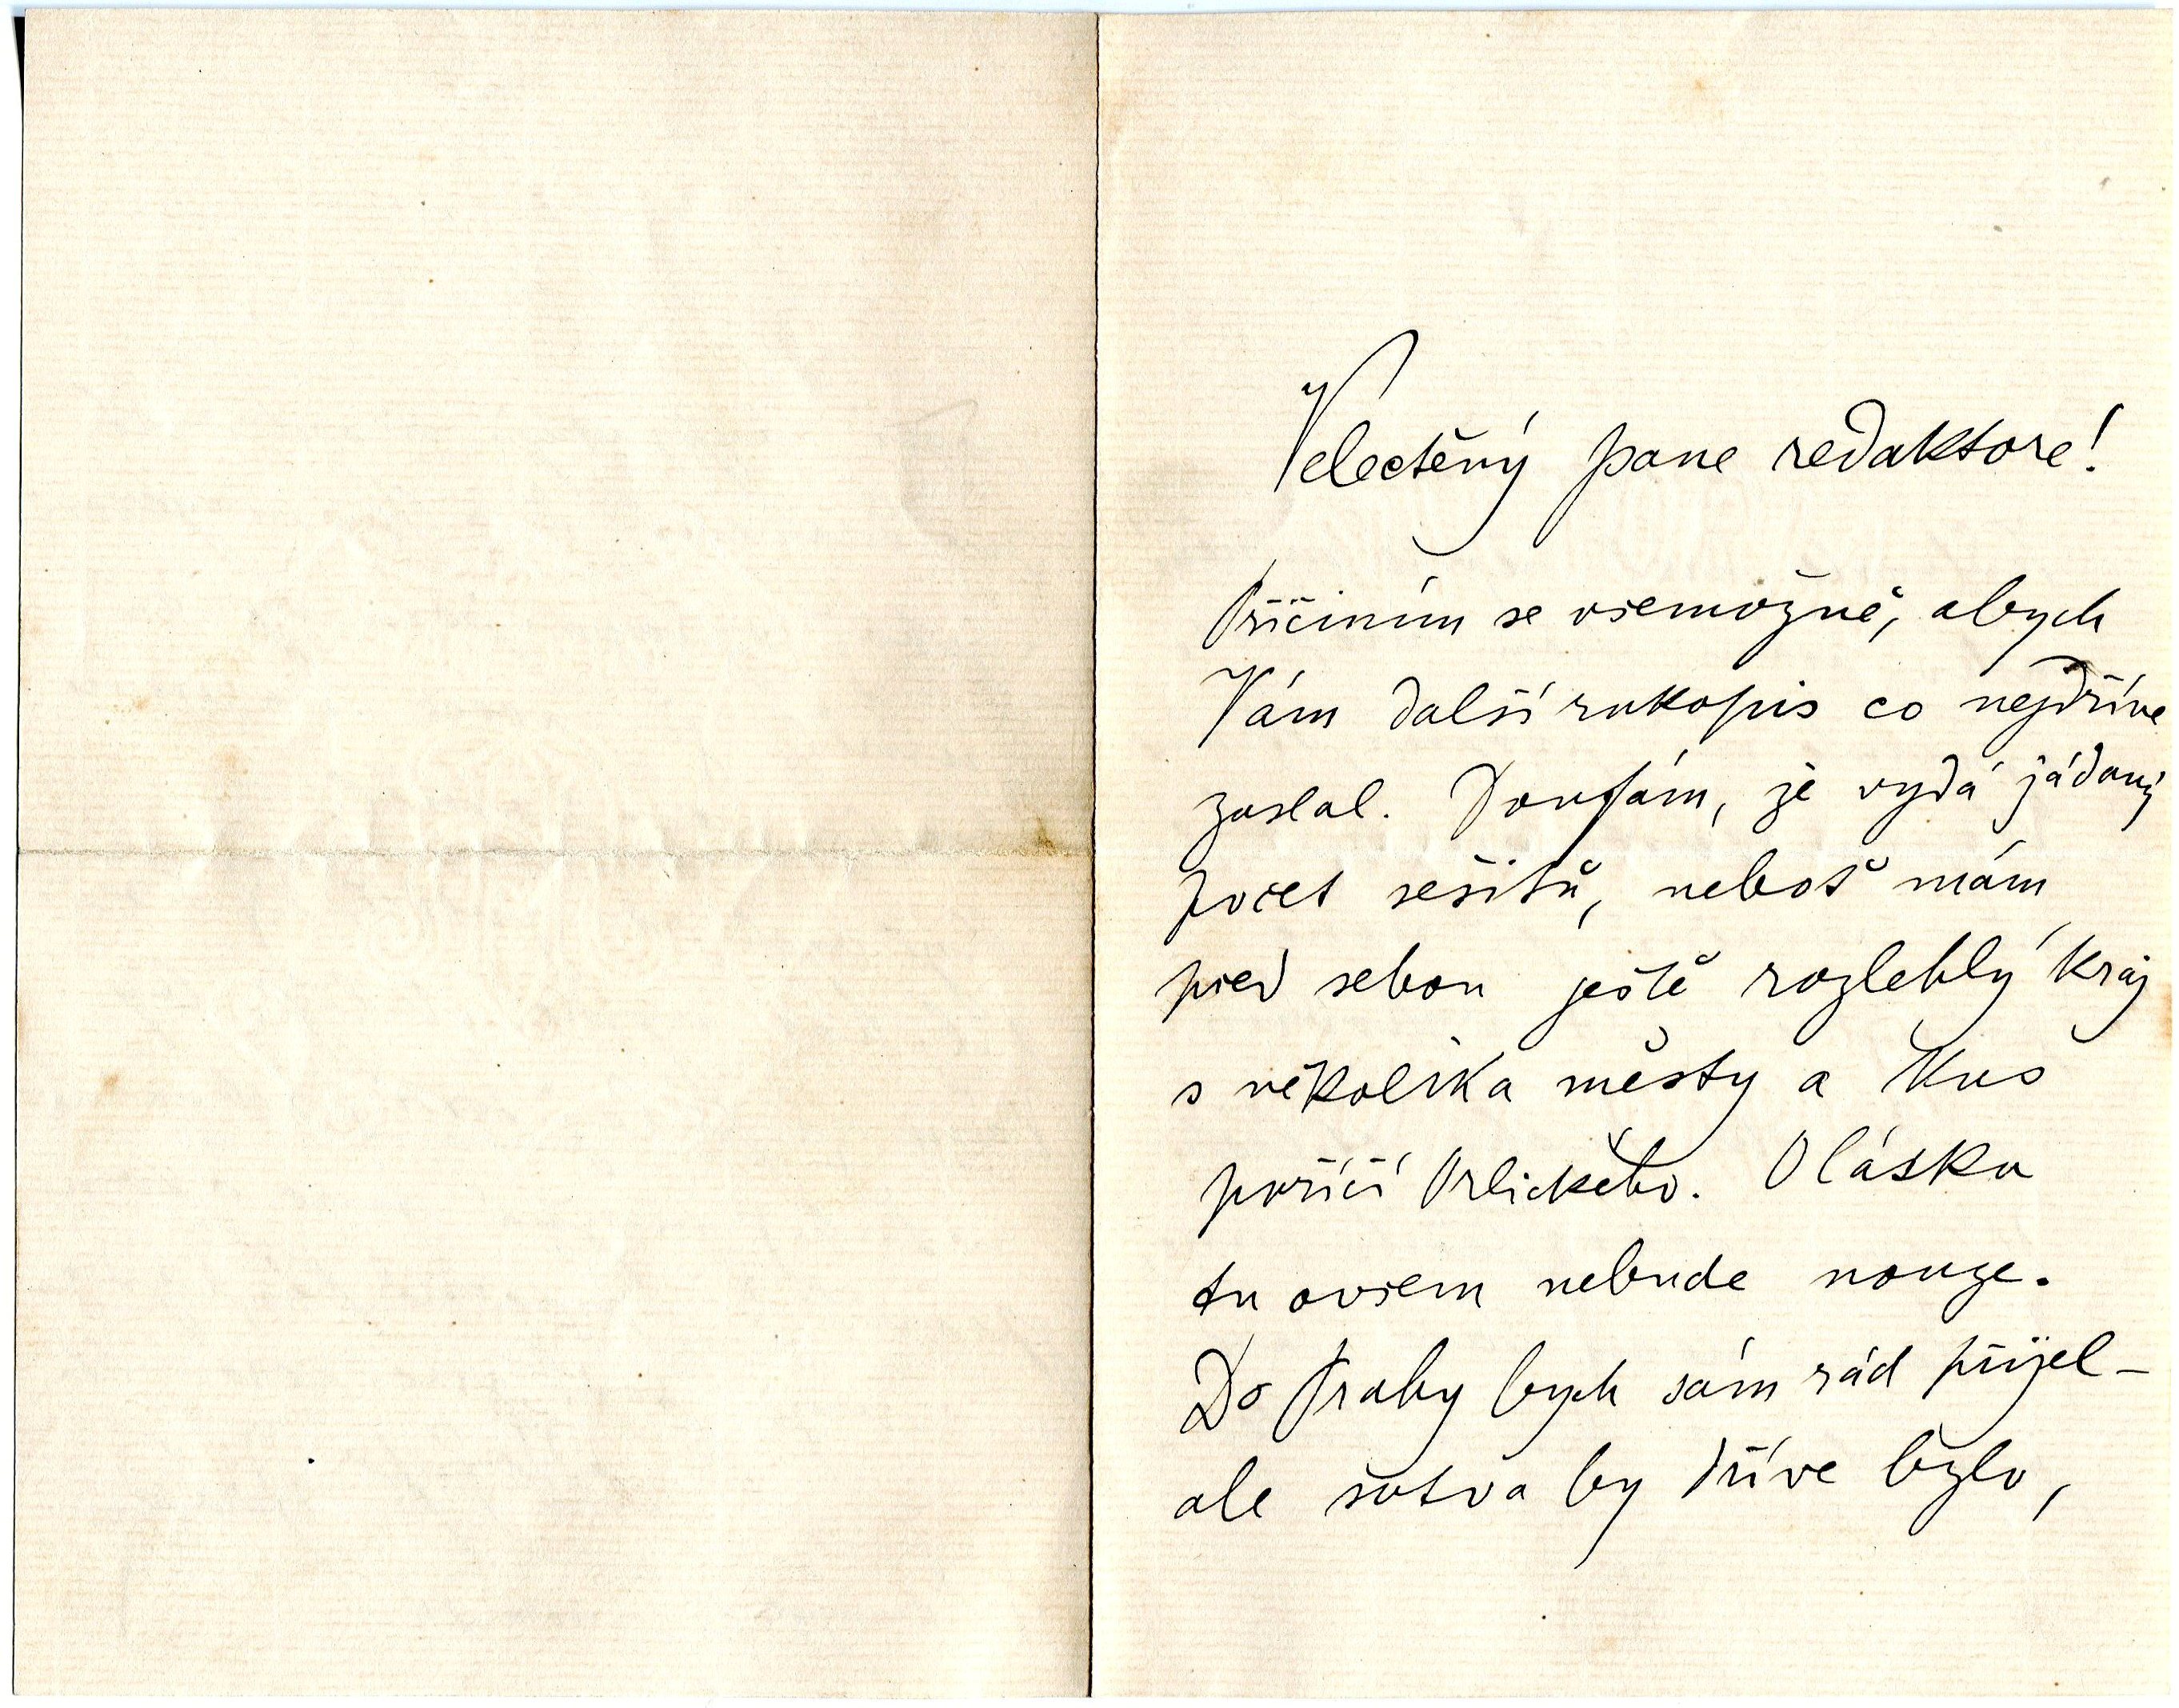 Velectěný pane redaktore!
Přičiním se všemožně, abych
Vám další rukopis co nejdříve
zaslal. Doufám, že vydá žádaný
počet sešitů, neboť mám
před sebou ještě rozlehlý kraj
s několika městy a kus
poříčí Orlického. O lásku
tu ovšem nebude nouze.
Do Prahy bych sám rád přijel –
ale sotva by dříve bylo,